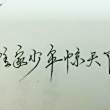 家少年惊天下